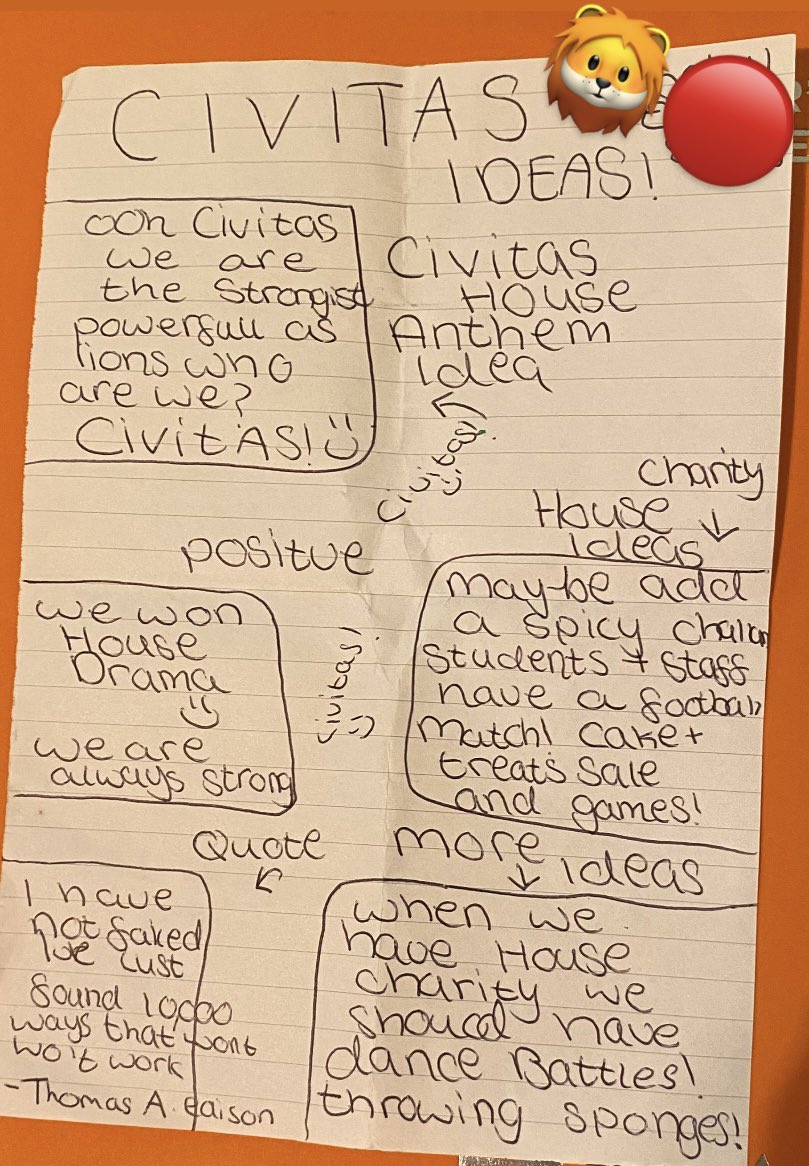 CIVITAS
IDEAS!
ooh Civitas
we are
the Strongist
powerfull as
lions who
are we?
CivitAS!
Civitas
House
Anthem
Idea
Civitas!
Charity
House
Ideas
may-be add
a spicy
students + staff
have a football
match! cake +
treats sale
and games!
positve
we won
House
Drama
we are
always strong
Civitas!
Quote
I have
not faked
Ive Just
found 10,000
ways that wont
wo't work
-Thomas A. Edison
more
ideas
when we
have House
charity we
should have
dance Battles!
throwing sponges!